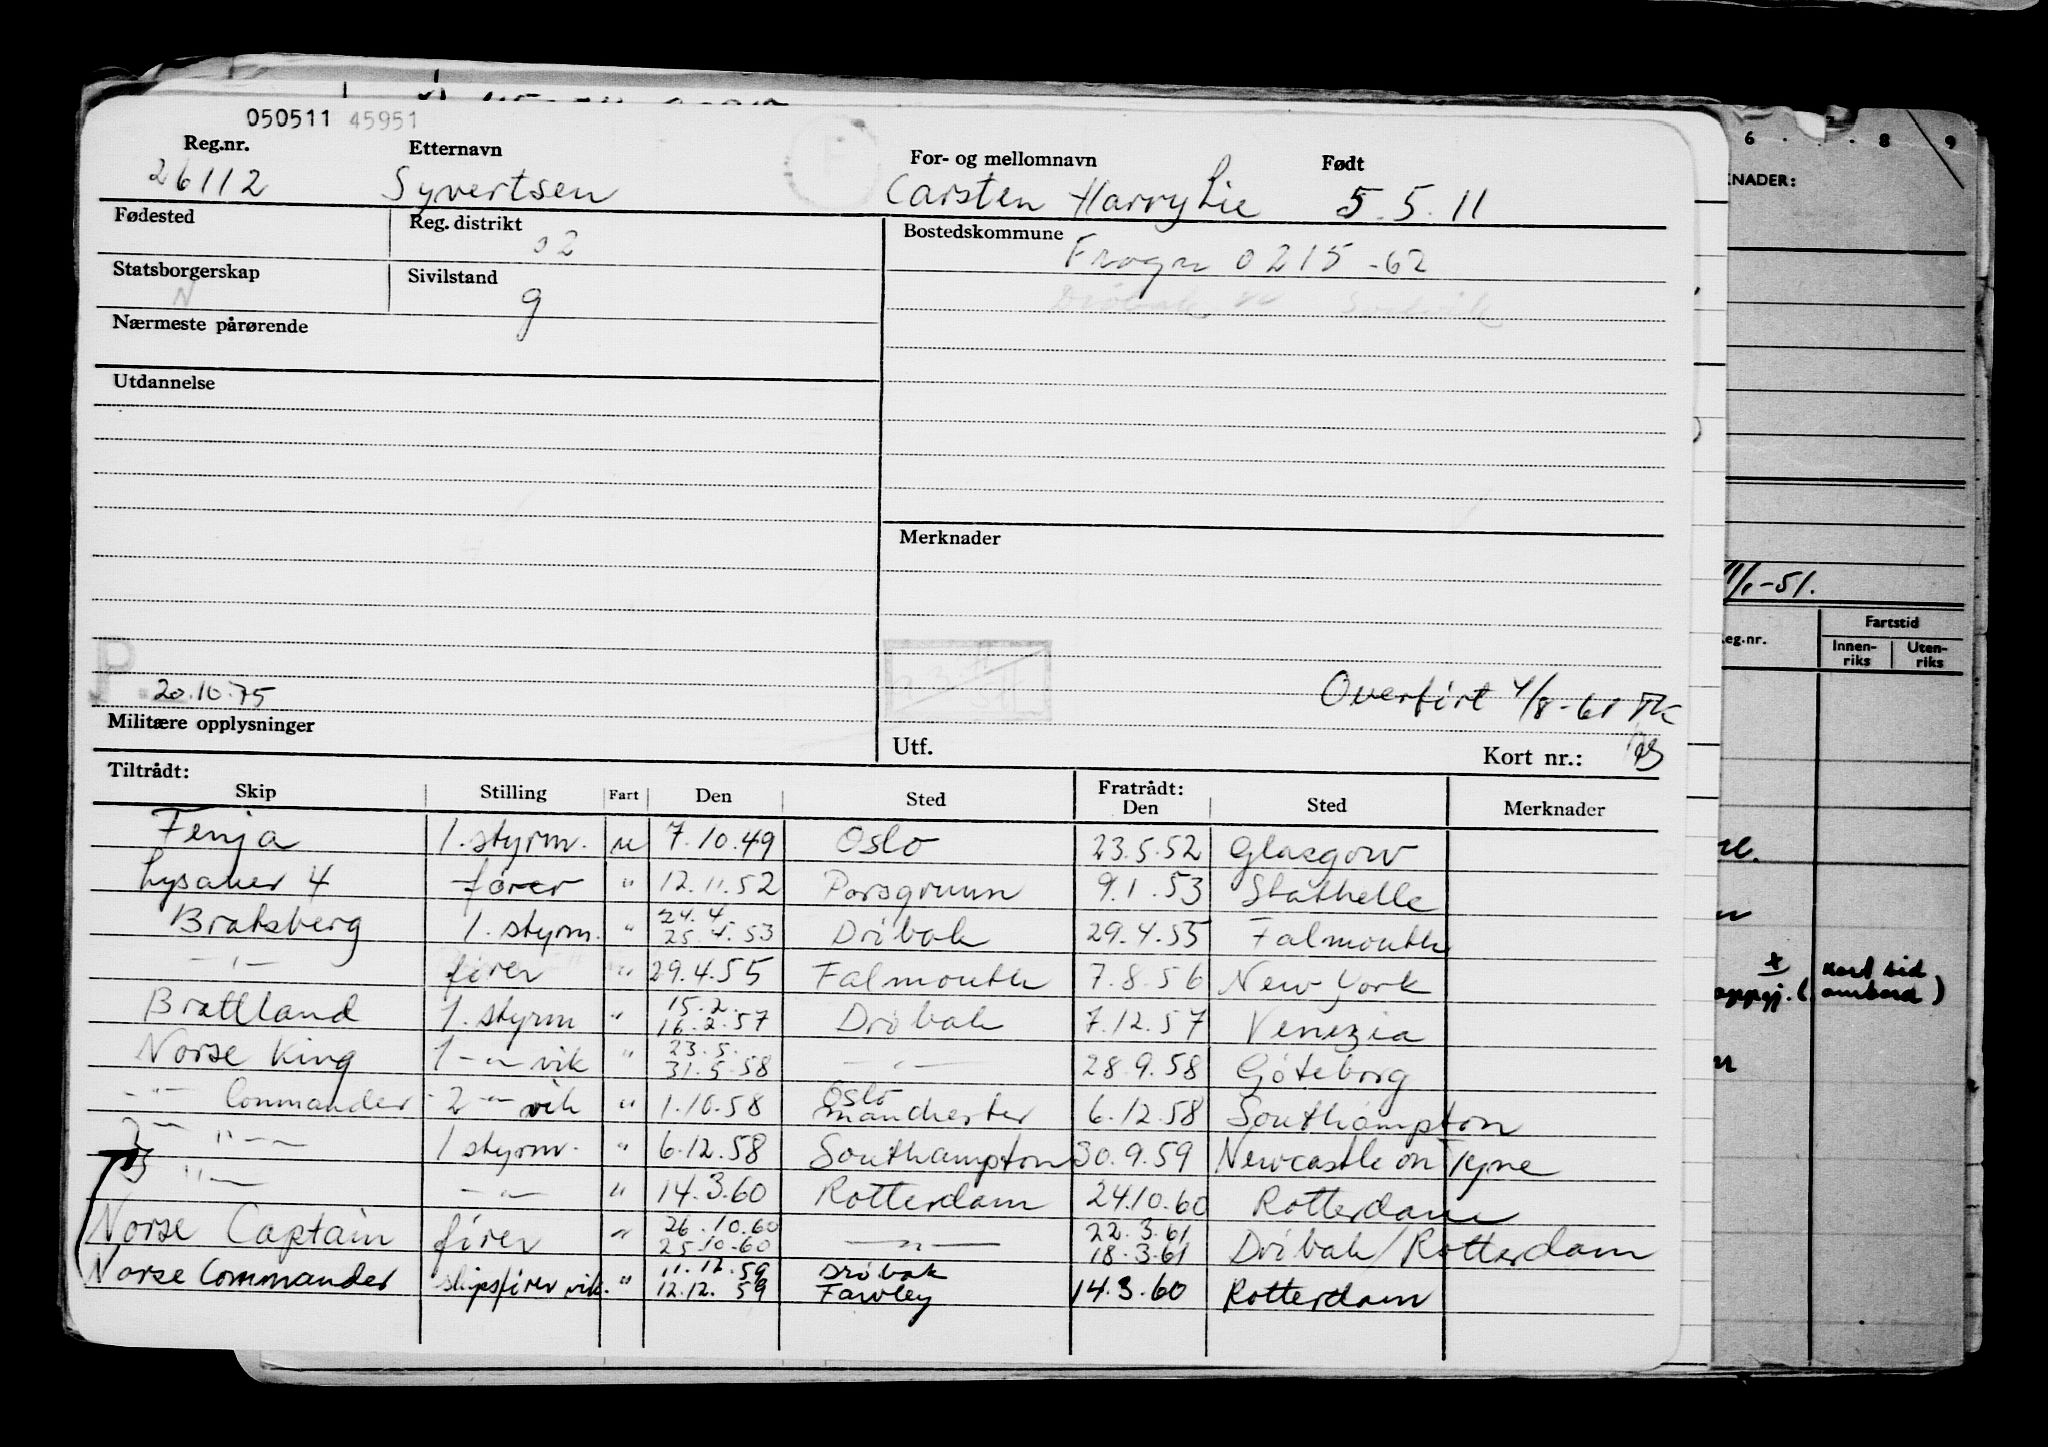 050511 45951
Reg.nr. Etternavn For- og mellomnavn Født
26112 Syvertsen Carsten Harry Lie 5.5.11
Fødested Reg. distrikt Bostedskommune
02 Frogn 0215 -62
Statsborgerskap Sivilstand
N g
Drøbak
Nærmeste pårørende
Utdannelse
Merknader
P. 20.10.75
Overført 4/8-61
Militære opplysninger Utf. Kort nr.:
Tiltrådt: Fratrådt:
Skip Stilling Fart Den Sted Den Sted Merknader
Fenja 1. styrm. u 7.10.49 Oslo 23.5.52 Glasgow
Lysaker 4 fører " 12.11.52 Porsgrunn 9.1.53 Stathelle
Bratsberg 1. styrm. " 24.4. 25.4.53 Drøbak 29.4.55 Falmouth
-"- fører " 29.4.55 Falmouth 7.8.56 New York
Brattland 1. styrm " 15.2. 16.2.57 Drøbak 7.12.57 Venezia
Norse King 1 -"- vik " 23.5. 31.5.58 -"- 28.9.58 Göteborg
-"- Commander 2 -"- vik " 1.10.58 Oslo Manchester 6.12.58 Southampton
-"- "- 1 styrm. " 6.12.58 Southampton 30.9.59 Newcastle on Tyne
"- -"- " 14.3.60 Rotterdam 24.10.60 Rotterdam
Norse Captain fører " 26.10.60 25.10-60 -"- 22.3.61 18.3.61 Drøbak/Rotterdam
Norse Commander skipsfører vik. " 11.12.59 12.12.59 Drøbak Fawley 14.3.60 Rotterdam
6 . . 8 9
KNADER:
-51.
eg.nr. Fartstid
Innen-riks Uten-riks
ombord)